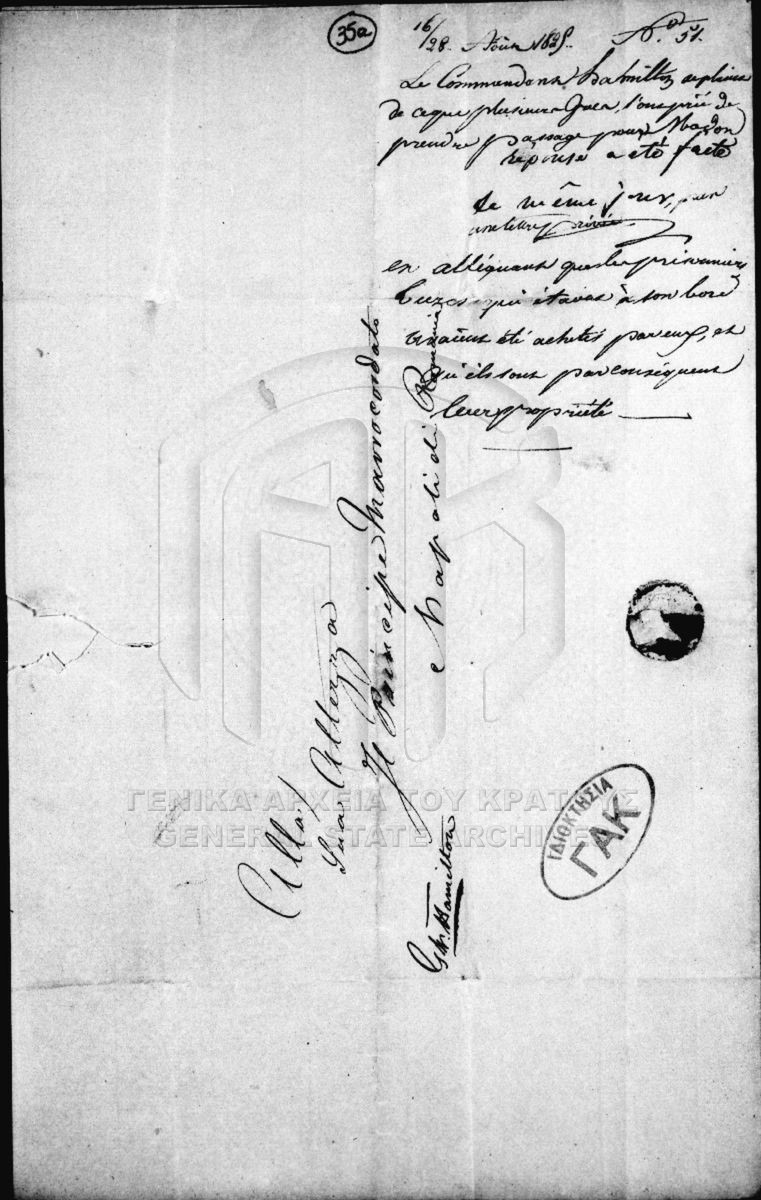 35a
16/28. Août 1825. N.º 51.
Le Commandant Hamilton se plaint
de ce que plusieurs Grecs, l'ont prié de
prendre passage pour
réponse a été faite
le même jour, par
une lettre privée
en alléguant que les prisonniers
Turcs qui étaient à son bord
avaient été achetés par eux, et
qu'ils sont par conséquent
leur propriété
All'
Sua Altezza
Il Principe Mavrocordato
Napoli di Romania
G. W. Hamilton
ΓΕΝΙΚΑ ΑΡΧΕΙΑ ΤΟΥ ΚΡΑΤΟΥΣ
GENERAL STATE ARCHIVES
ΙΔΙΟΚΤΗΣΙΑ
ΓΑΚ